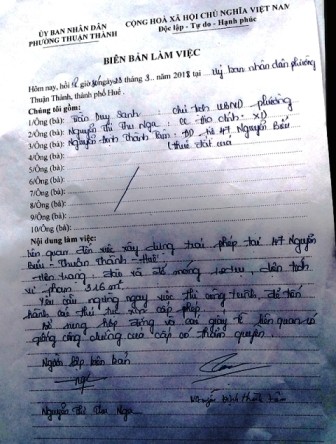 ỦY BAN NHÂN DÂN
PHƯỜNG THUẬN THÀNH
CỘNG HOÀ XÃ HỘI CHỦ NGHĨA VIỆT NAM
Độc lập - Tự do - Hạnh phúc
BIÊN BẢN LÀM VIỆC
Hôm nay, hồi giờ ngày 23 tháng 3 năm 2018 tại Uỷ ban nhân dân phường
Thuận Thành, thành phố Huế.
Chúng tôi gồm:
1/Ông (bà): Trần Duy Sanh chủ tịch UBND phường
2/Ông (bà): Nguyễn Thị Thu Nga: CC địa chính - XD
3/Ông (bà): Nguyễn Đình Thành 47 Nguyễn Biểu
4/Ông (bà): (thuê đất
5/Ông (bà):
6/Ông (bà):
7/Ông (bà):
8/Ông (bà):
9/Ông (bà):
10/Ông (bà):
Nội dung làm việc:
liên quan đến việc xây dựng trái phép tại 47 Nguyễn
Biểu - Thuận Thành - Huế
Hiện trạng: đào và đổ móng diện tích
vi phạm: 316 m²
Yêu cầu ngừng ngay việc thi công trình, để tiến
hành các thủ tục xin cấp phép.
Bổ sung hợp đồng và các giấy tờ liên quan có
công chứng của cấp có thẩm quyền.
Người lập biên bản
Nguyễn Thị Thu Nga
Nguyễn Đình Thành